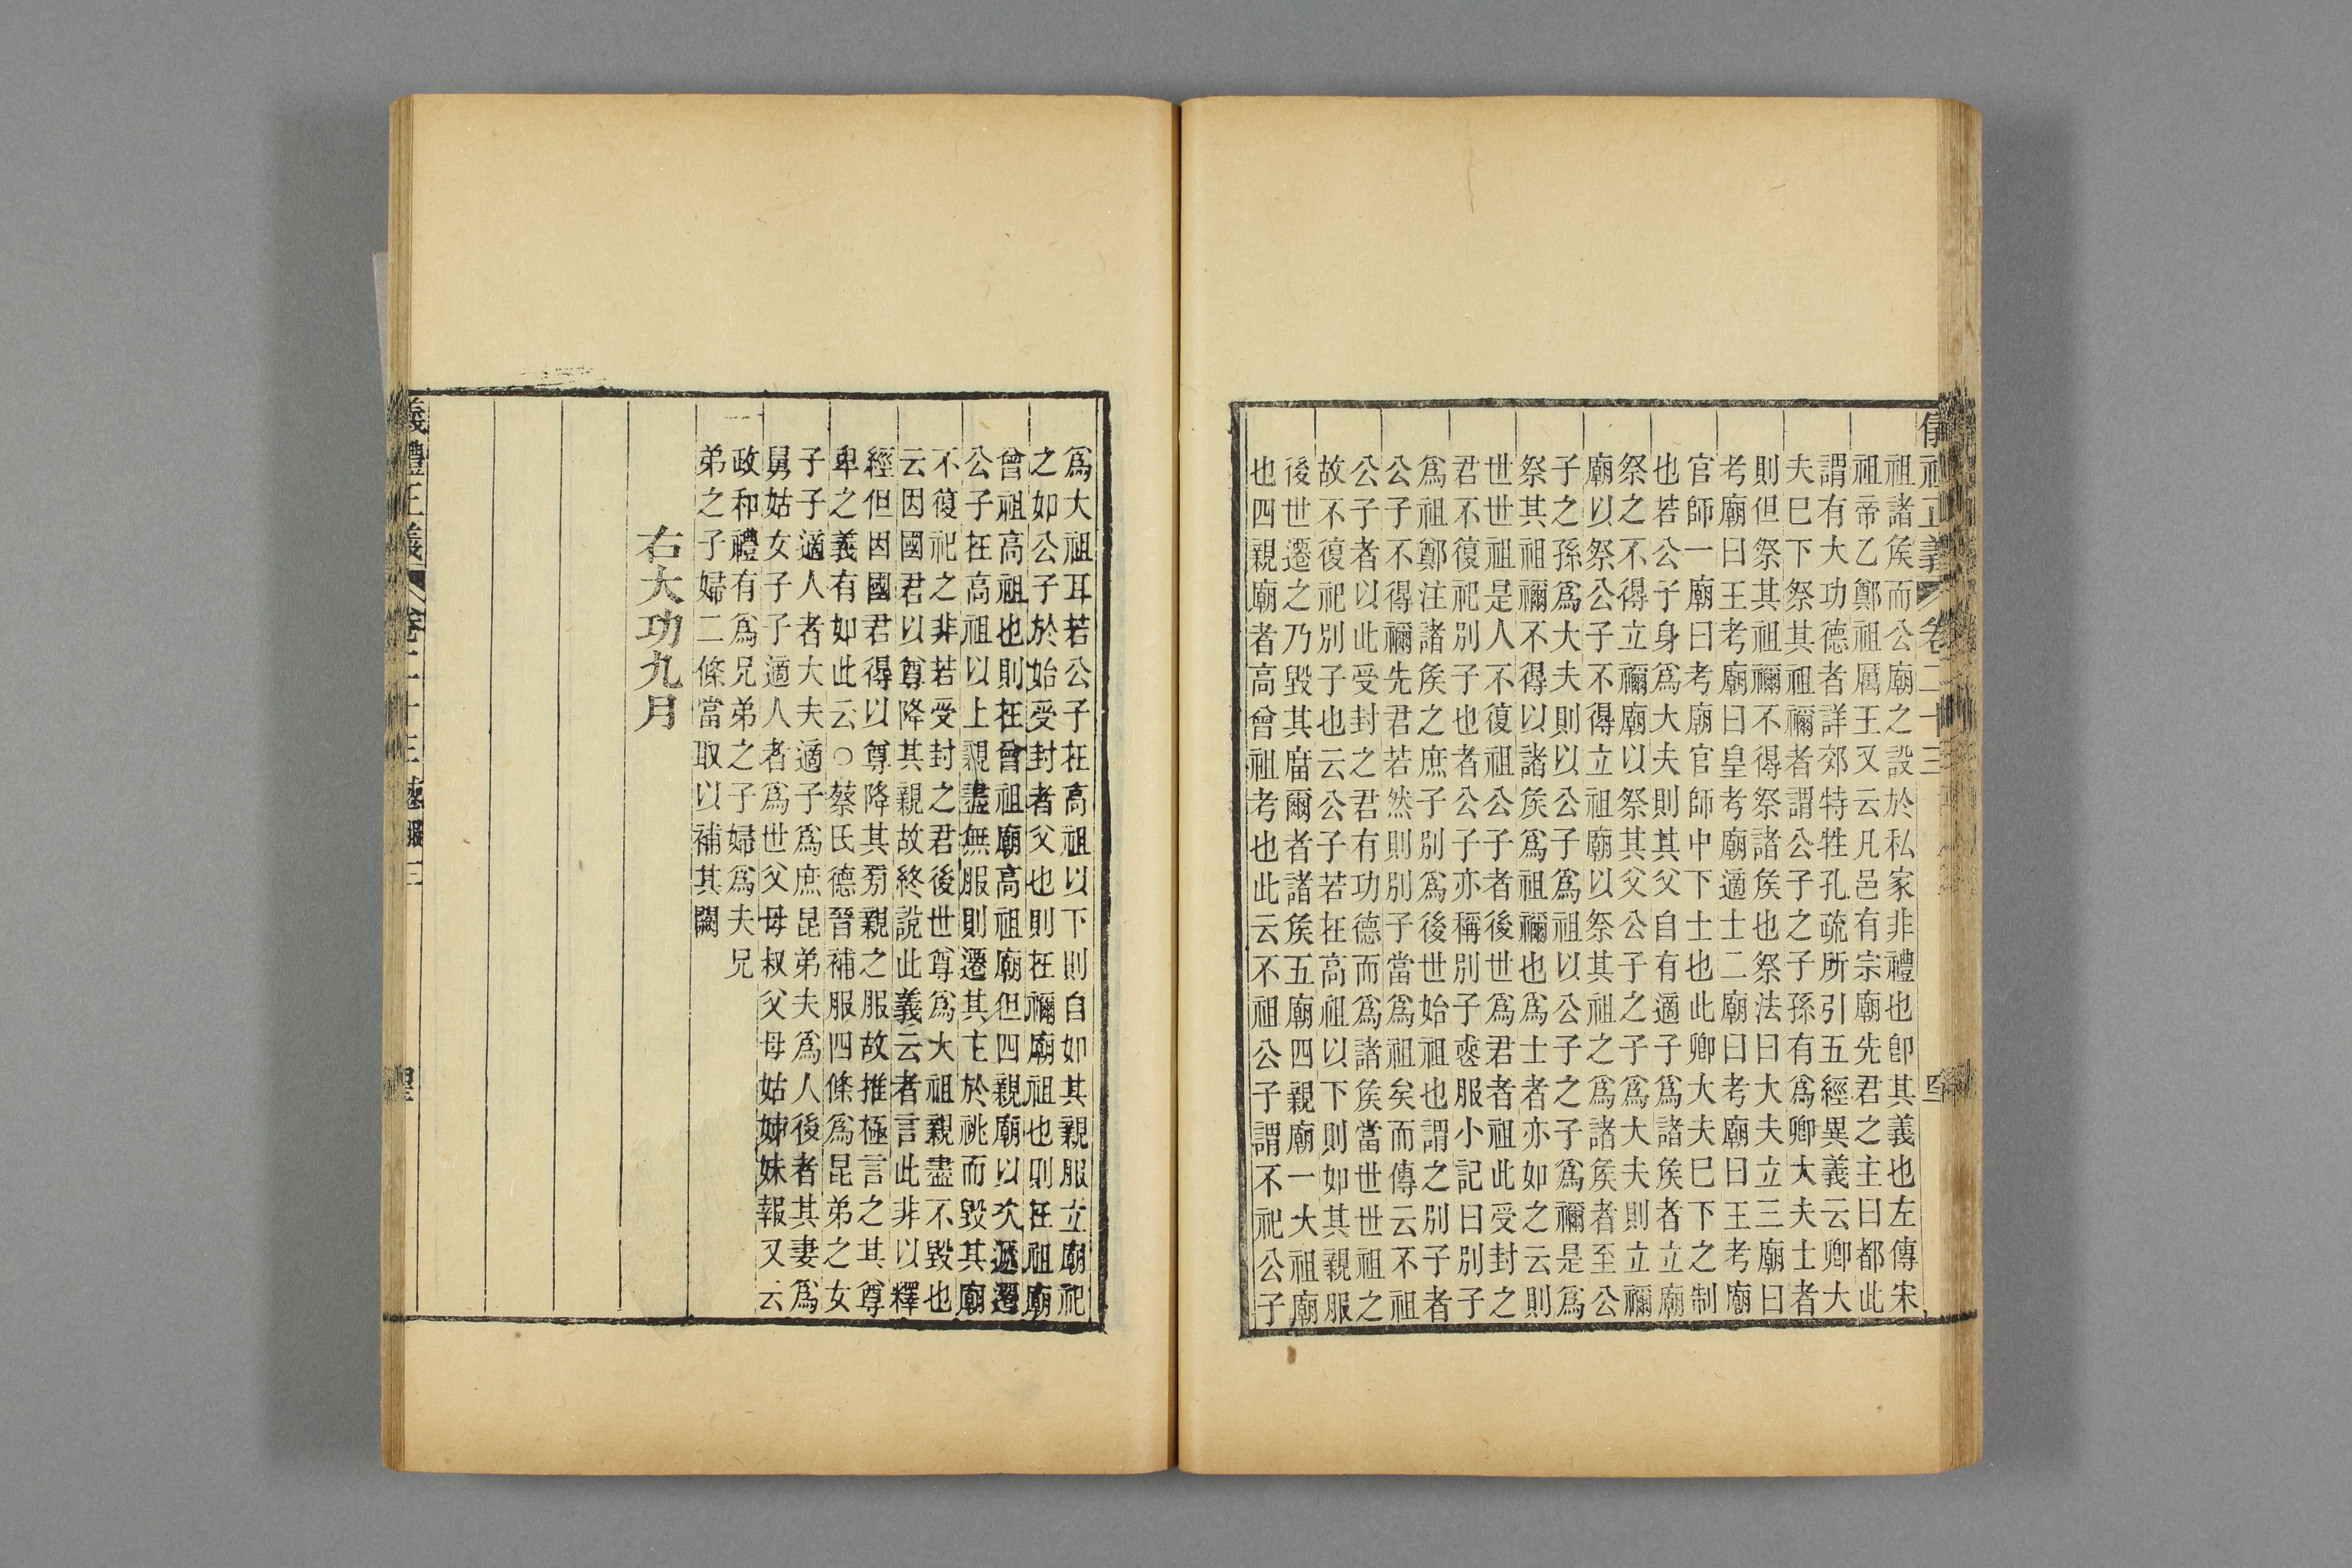 祖諸矦而公廟之設於私家非禮也卽其義也左傳宋
祖帝乙鄭祖厲王又云凡邑有宗廟先君之主曰都此
謂有大功德者詳郊特牲孔疏所引五經異義云卿大
夫巳下祭其祖禰者謂公子之子孫有爲卿大夫士者
則但祭其祖禰不得祭諸矦也祭法曰大夫立三廟曰
考廟曰王考廟曰皇考廟適士二廟曰考廟曰王考廟
官師一廟曰考廟官師中下士也此卿大夫巳下之制
也若公子身爲大夫則其父自有適子爲諸矦者立廟
祭之不得立禰廟以祭其父公子之子爲大夫則立禰
廟以祭公子不得立祖廟以祭其祖之爲諸矦者至公
子之孫爲大夫則以公子爲祖以公子之子爲禰是爲
祭其祖禰不得以諸矦爲祖禰也爲士者亦如之云則
世世祖是人不復祖公子者後世爲君者祖此受封之
君不復祀別子也者公子亦稱別子喪服小記曰別子
爲祖鄭注諸矦之庶子別爲後世始祖也謂之別子者
公子不得禰先君若然則別子當爲祖矣而傳云不祖
公子者以此受封之君有功德而爲諸矦當世世祖之
故不復祀別子也云公子若在高祖以下則如其親服
後世遷之乃毀其廟爾者諸矦五廟四親廟一大祖廟
也四親廟者高曾祖考也此云不祖公子謂不祀公子
爲大祖耳若公子在高祖以下則自如其親服立廟祀
之如公子於始受封者父也則在禰廟祖也則在祖廟
曾祖高祖也則在曾祖廟高祖廟但四親廟以次遞遷
公子在高祖以上親盡無服則遷其主於祧而毀其廟
不復祀之非若受封之君後世尊爲大祖親盡不毀也
云因國君以尊降其親故終說此義云者言此非以釋
經但因國君得以尊降其旁親之服故推極言之其尊
卑之義有如此云○蔡氏德晉補服四條爲昆弟之女
子子適人者大夫適子爲庶昆弟夫爲人後者其妻爲
舅姑女子子適人者爲世父母叔父母姑姊妹報又云
政和禮有爲兄弟之子婦爲夫兄
弟之子婦二條當取以補其闕
右大功九月